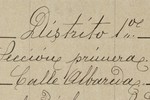 Distrito 1º
cción primera
Calle Albarda